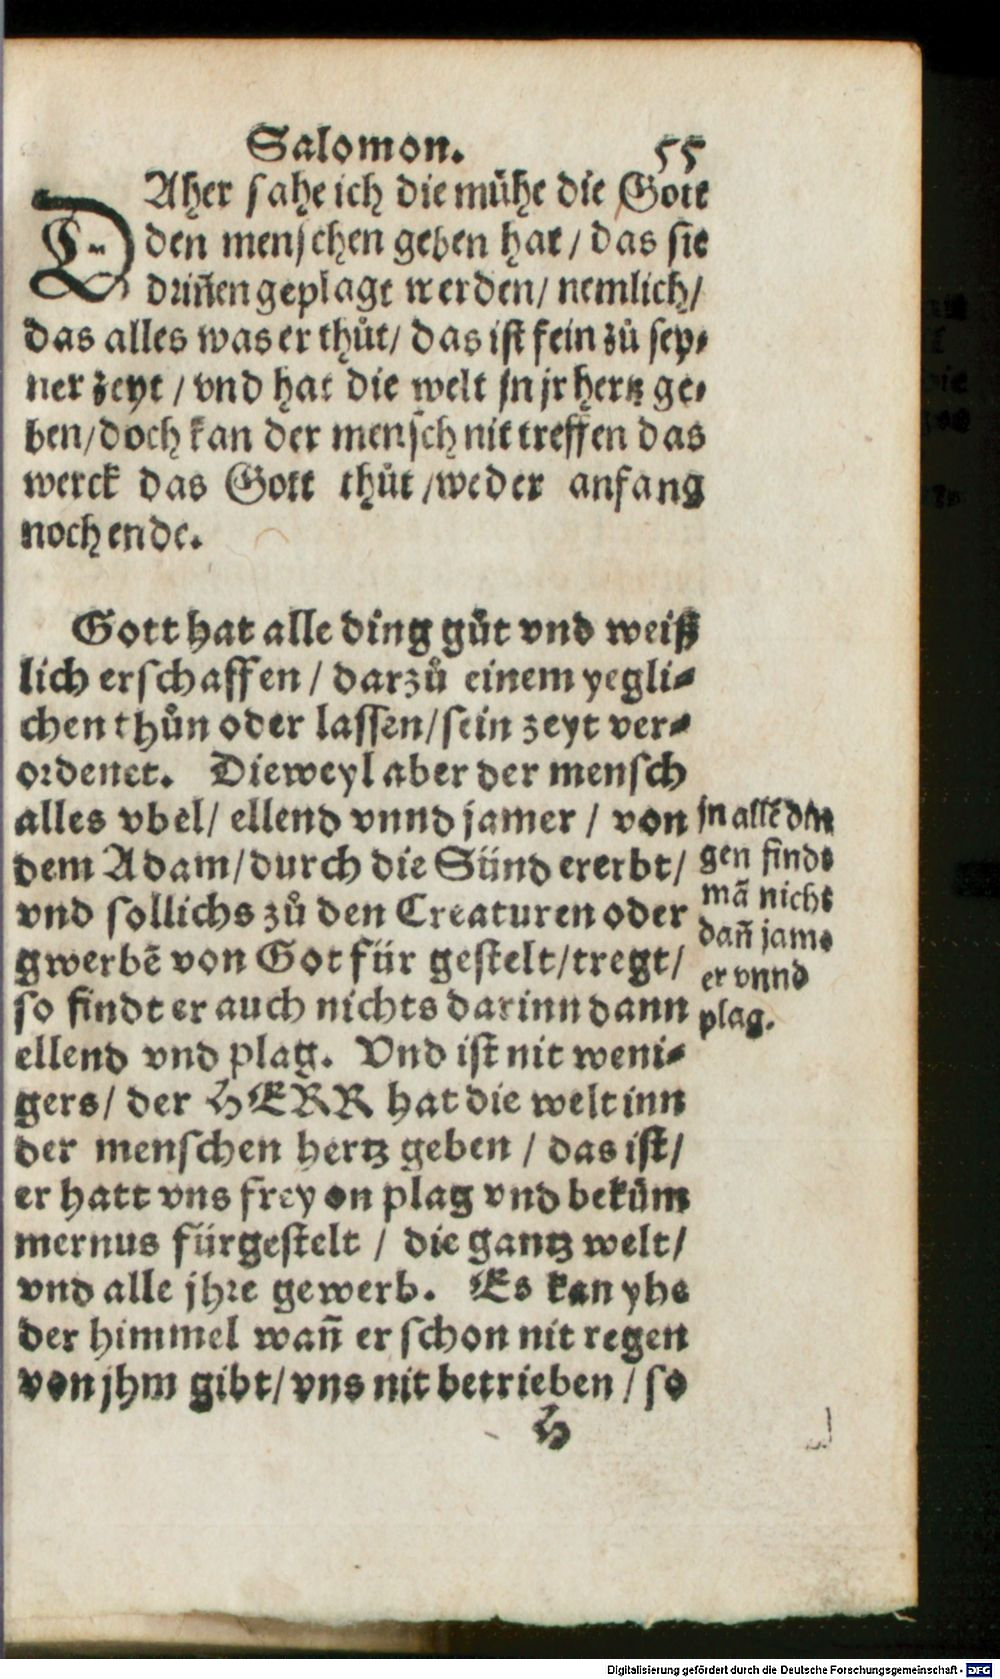 Salomon. 55
DAher sahe ich die mühe die Gott
den menschen geben hat / das sie
driñen geplagt werden / nemlich /
das alles was er thůt / das ist fein zů sey⸗
ner zeyt / vnd hat die welt jn jr hertz ge⸗
ben / doch kan der mensch nit treffen das
werck das Gott thůt / weder anfang
noch ende.
Gott hat alle ding gůt vnd weiß
lich erschaffen / darzů einem yegli⸗
chen thůn oder lassen / sein zeyt ver⸗
ordenet. Dieweyl aber der mensch
alles vbel / ellend vnnd jamer / von
dem Adam / durch die Sünd ererbt /
vnd sollichs zů den Creaturen oder
gwerbē von Got für gestelt / tregt /
so findt er auch nichts darinn dann
ellend vnd plag. Vnd ist nit weni⸗
gers / der HERR hat die welt inn
der menschen hertz geben / das ist /
er hatt vns frey on plag vnd beküm
mernus fürgestelt / die gantz welt /
vnd alle jhre gewerb. Es kan yhe
der himmel wañ er schon nit regen
von jhm gibt / vns nit betrieben / so
H
jn allē din
gen findt
mā nicht
dañ jam⸗
er vnnd
plag.
Digitalisierung gefördert durch die Deutsche Forschungsgemeinschaft - DFG